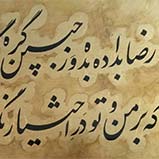 رضا بداده بده وز جبین گره
که بر من و تو در اختیار نگ